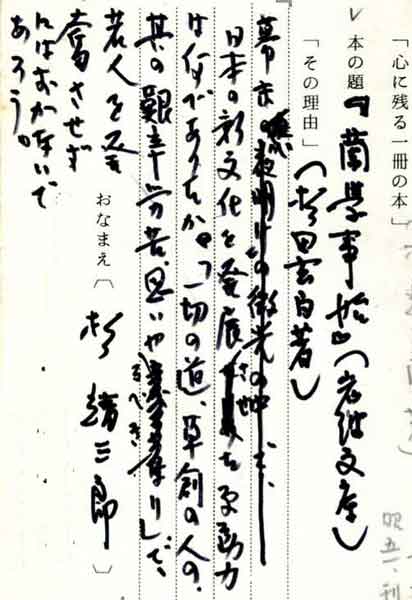 「心に残る一冊の本」
本の題『蘭學事始』(岩波文庫)
「その理由」(杉田玄白著)
幕末の夜明けの微光の中で、
日本の新文化を発展させた原動力
は何であったか。「一切の道、草創の人の、
其の艱辛労苦、思いやるべきなり」で、
若人を発
奮させず
にはおかないで
あろう。
おなまえ〔杉 靖三郎〕
昭五一・刊